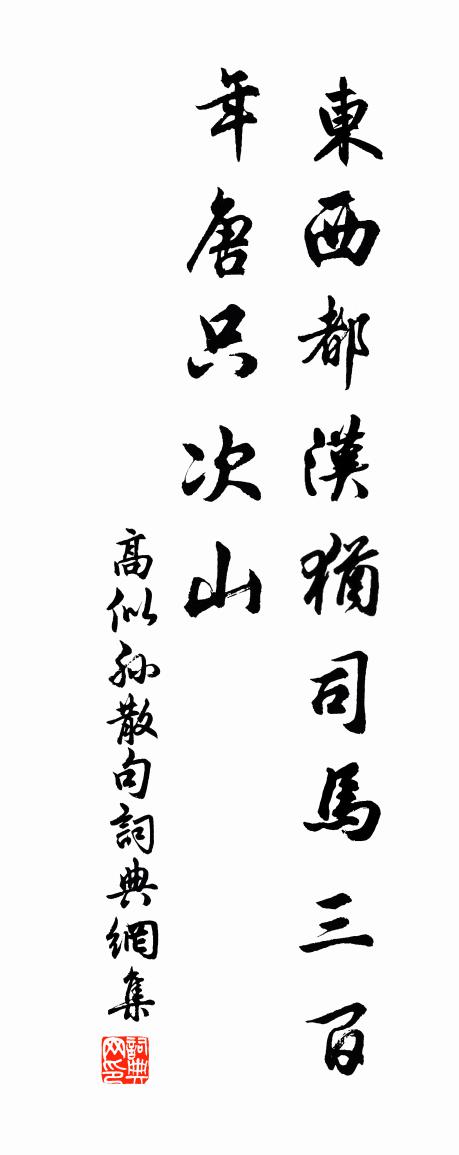 東西都漢猶司馬三百
年唐只次山
高似孙散句詞典網集
詞典
网印